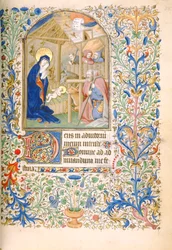 Deus in adiutoriu
meum intende
Domine ad ad
iuuandum me fe
stina